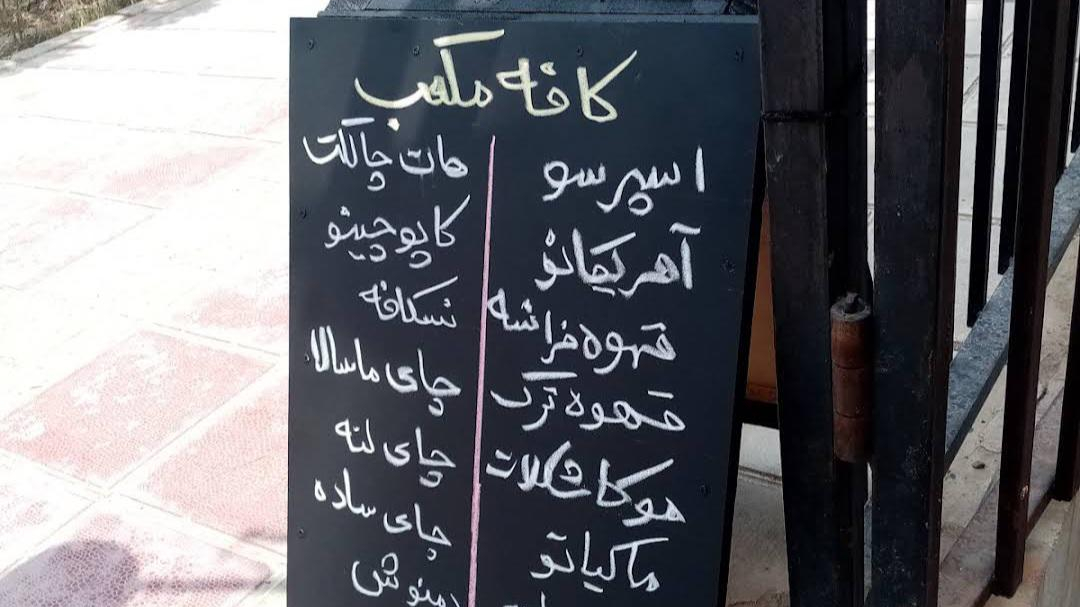 کافه مکعب
اسپرسو
آمریکانو
قهوه فرانسه
قهوه ترک
موکا شکلات
ماکیاتو
هات چاکلت
کاپوچینو
نسکافه
چای ماسالا
چای لته
چای ساده
دمنوش